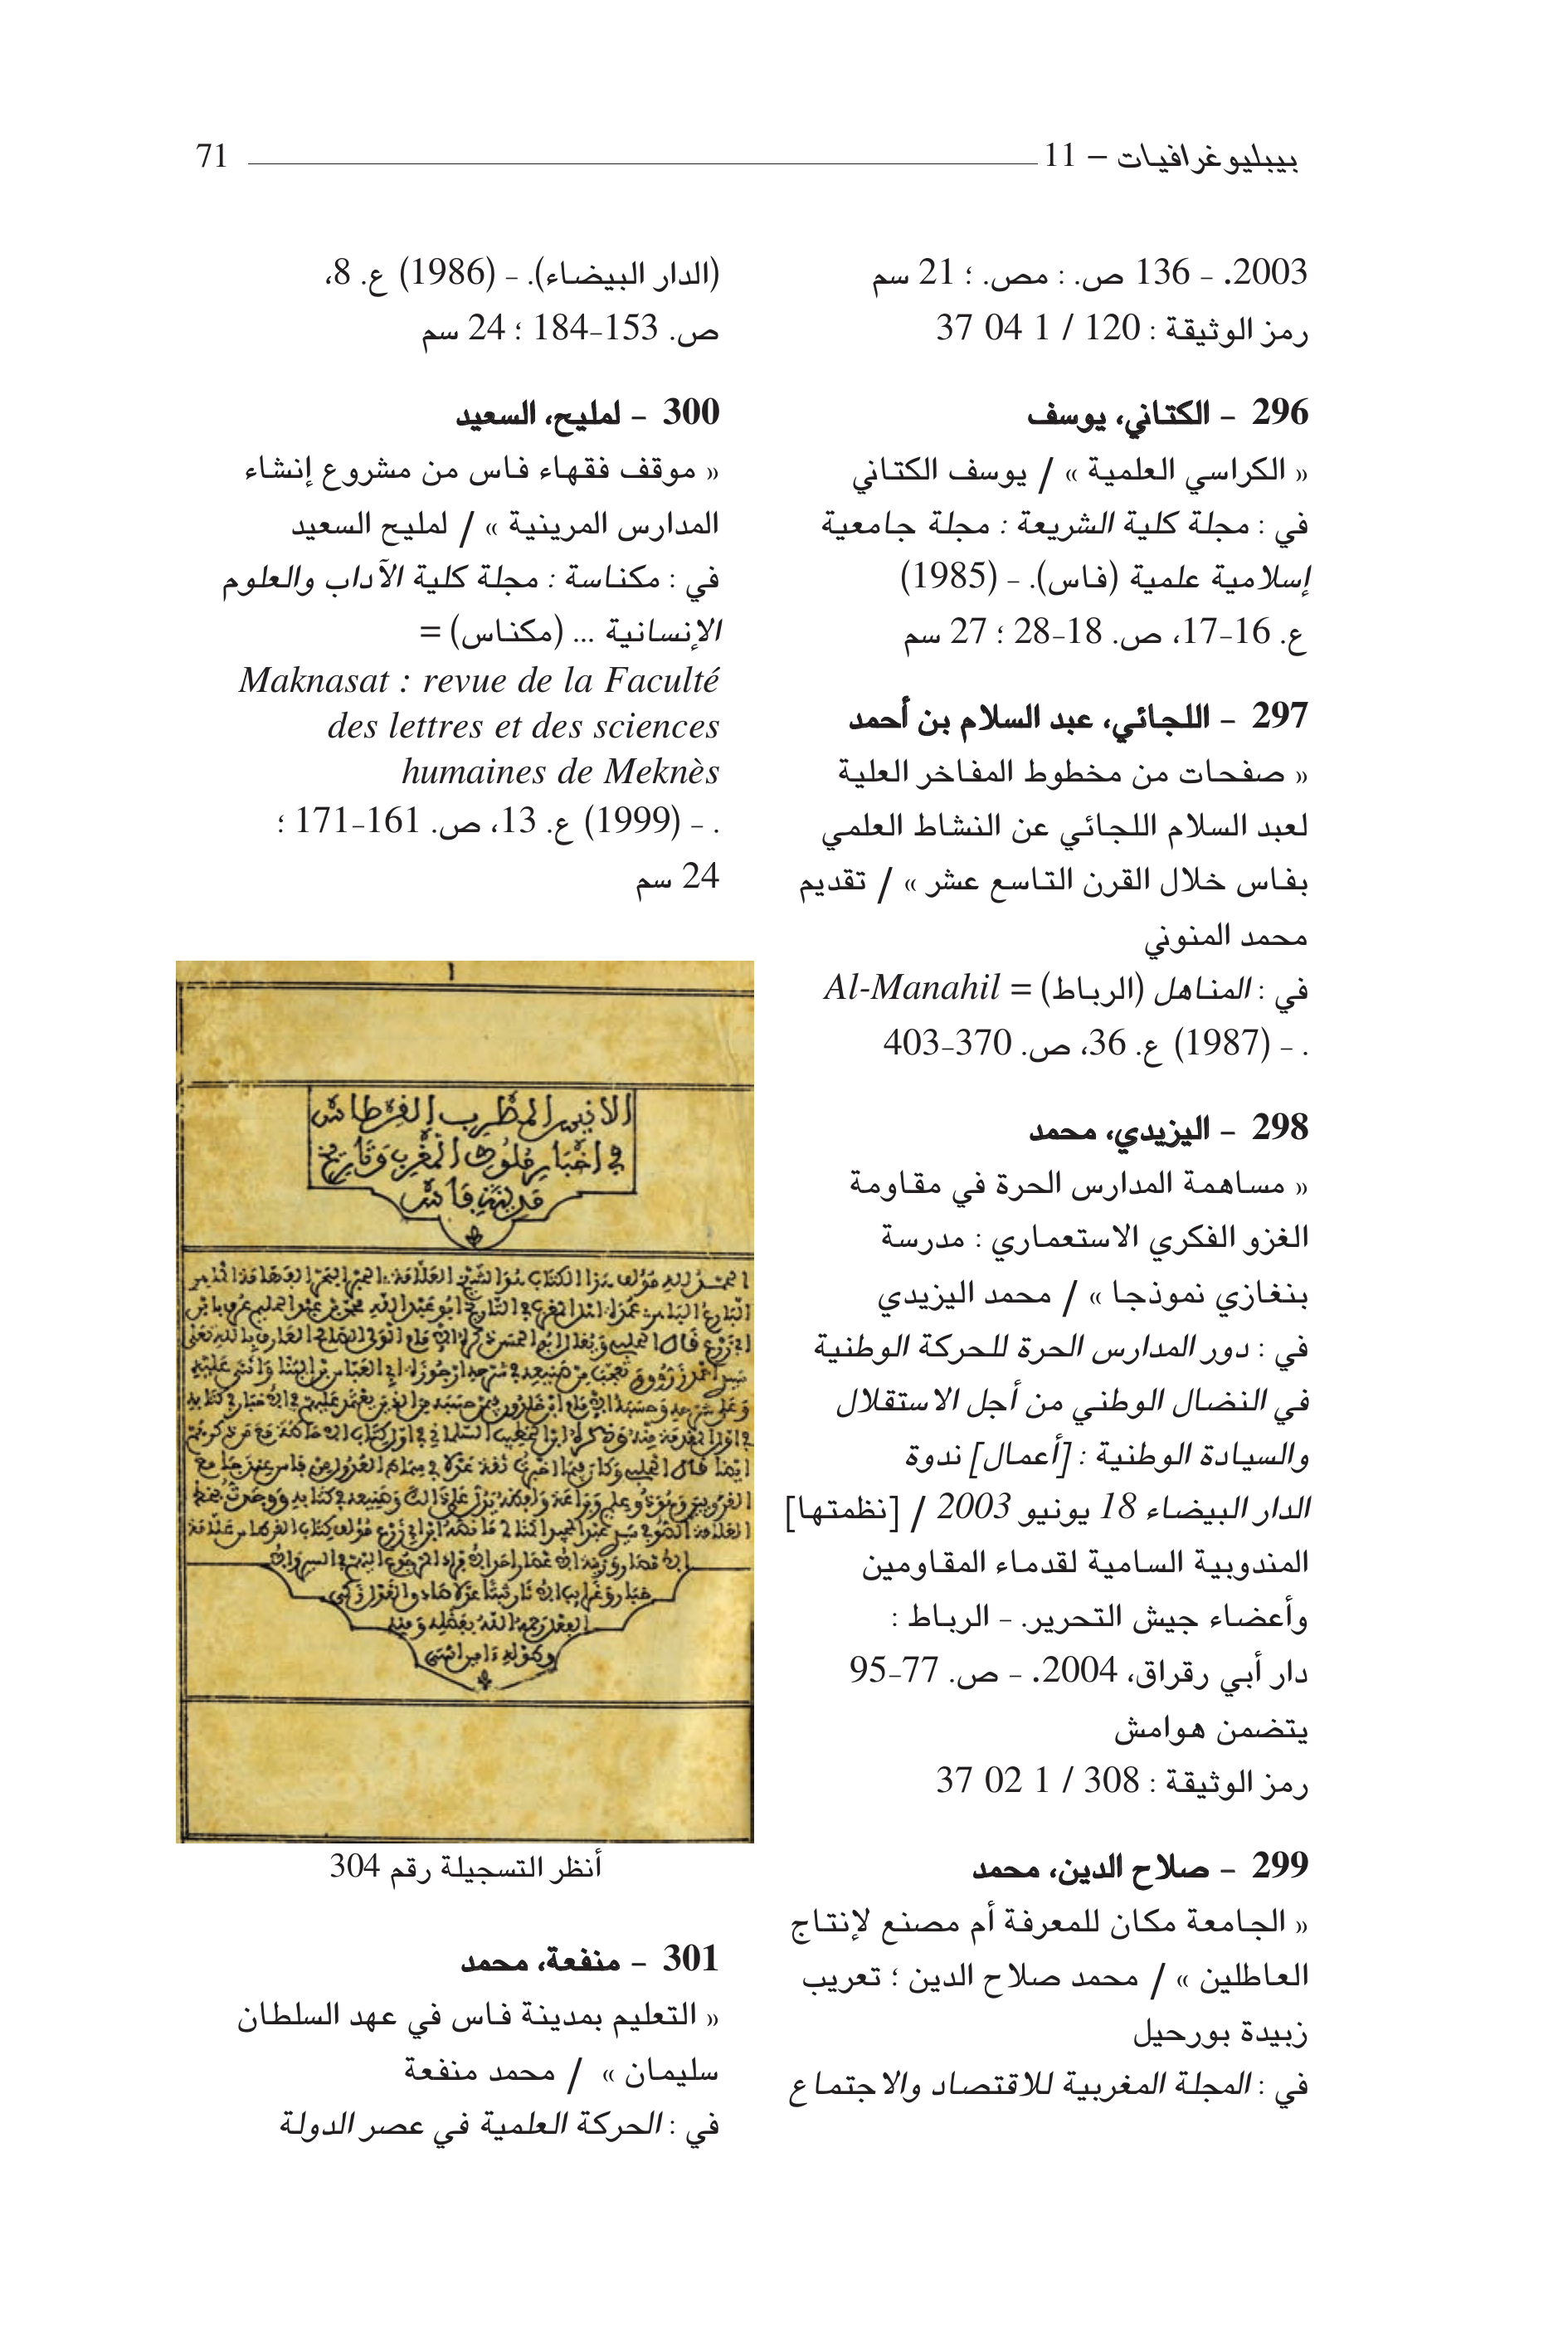 بيبليوغرافيات – 11
71
2003. – 136 ص. : مص. ؛ 21 سم
رمز الوثيقة : 120 / 1 04 37
296 – الكتاني، يوسف
« الكراسي العلمية » / يوسف الكتاني
في : مجلة كلية الشريعة : مجلة جامعية
إسلامية علمية (فاس). – (1985)
ع. 16-17، ص. 18-28 ؛ 27 سم
297 – اللجائي، عبد السلام بن أحمد
« صفحات من مخطوط المفاخر العلية
لعبد السلام اللجائي عن النشاط العلمي
بفاس خلال القرن التاسع عشر » / تقديم
محمد المنوني
في : المناهل (الرباط) = Al-Manahil
. – (1987) ع. 36، ص. 370-403
298 – اليزيدي، محمد
« مساهمة المدارس الحرة في مقاومة
الغزو الفكري الاستعماري : مدرسة
بنغازي نموذجا » / محمد اليزيدي
في : دور المدارس الحرة للحركة الوطنية
في النضال الوطني من أجل الاستقلال
والسيادة الوطنية : [أعمال] ندوة
الدار البيضاء 18 يونيو 2003 / [نظمتها]
المندوبية السامية لقدماء المقاومين
وأعضاء جيش التحرير. – الرباط :
دار أبي رقراق، 2004. – ص. 77-95
يتضمن هوامش
رمز الوثيقة : 308 / 1 02 37
299 – صلاح الدين، محمد
« الجامعة مكان للمعرفة أم مصنع لإنتاج
العاطلين » / محمد صلاح الدين ؛ تعريب
زبيدة بورحيل
في : المجلة المغربية للاقتصاد والاجتماع
(الدار البيضاء). – (1986) ع. 8،
ص. 153-184 ؛ 24 سم
300 – لمليح، السعيد
« موقف فقهاء فاس من مشروع إنشاء
المدارس المرينية » / لمليح السعيد
في : مكناسة : مجلة كلية الآداب والعلوم
الإنسانية ... (مكناس) =
Maknasat : revue de la Faculté
des lettres et des sciences
humaines de Meknès
. – (1999) ع. 13، ص. 161-171 ؛
24 سم
الانيس المطرب القرطاس
في اخبار ملوك المغرب وتاريخ
مدينة فاس
أنظر التسجيلة رقم 304
301 – منفعة، محمد
« التعليم بمدينة فاس في عهد السلطان
سليمان » / محمد منفعة
في : الحركة العلمية في عصر الدولة